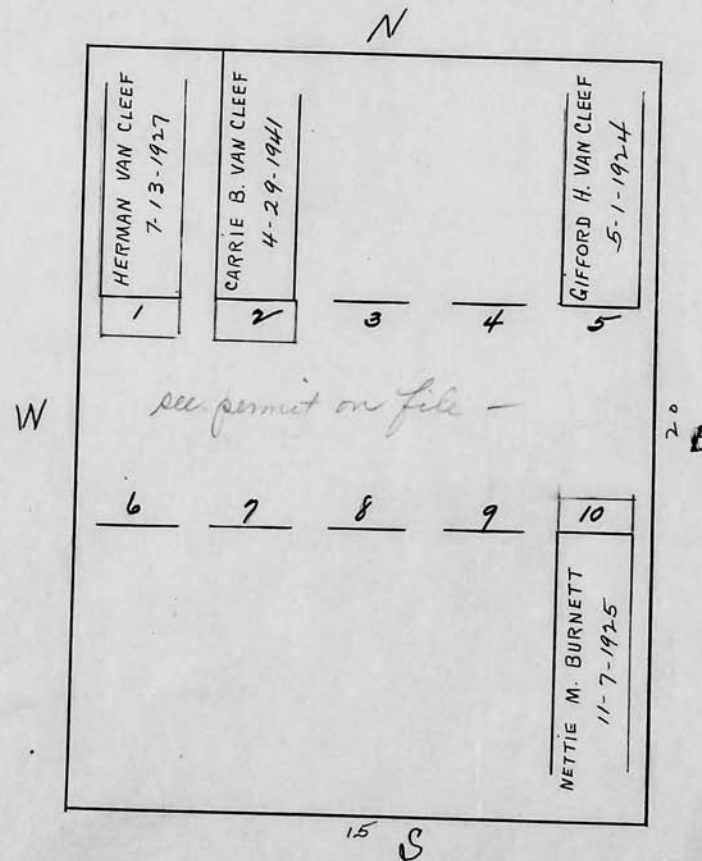 N
HERMAN VAN CLEEF
7-13-1927
CARRIE B. VAN CLEEF
4-29-1941
GIFFORD H. VAN CLEEF
5-1-1924
1
2
3
4
5
see permit on file -
W
20
E
6
7
8
9
10
NETTIE M. BURNETT
11-7-1925
15
S